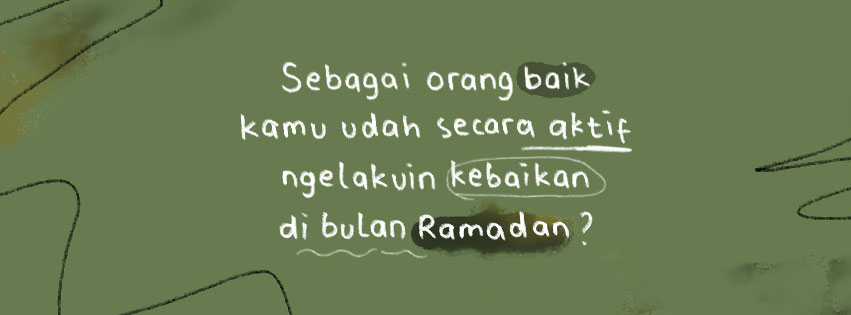 Sebagai orang baik
kamu udah secara aktif
ngelakuin kebaikan
di bulan Ramadan?